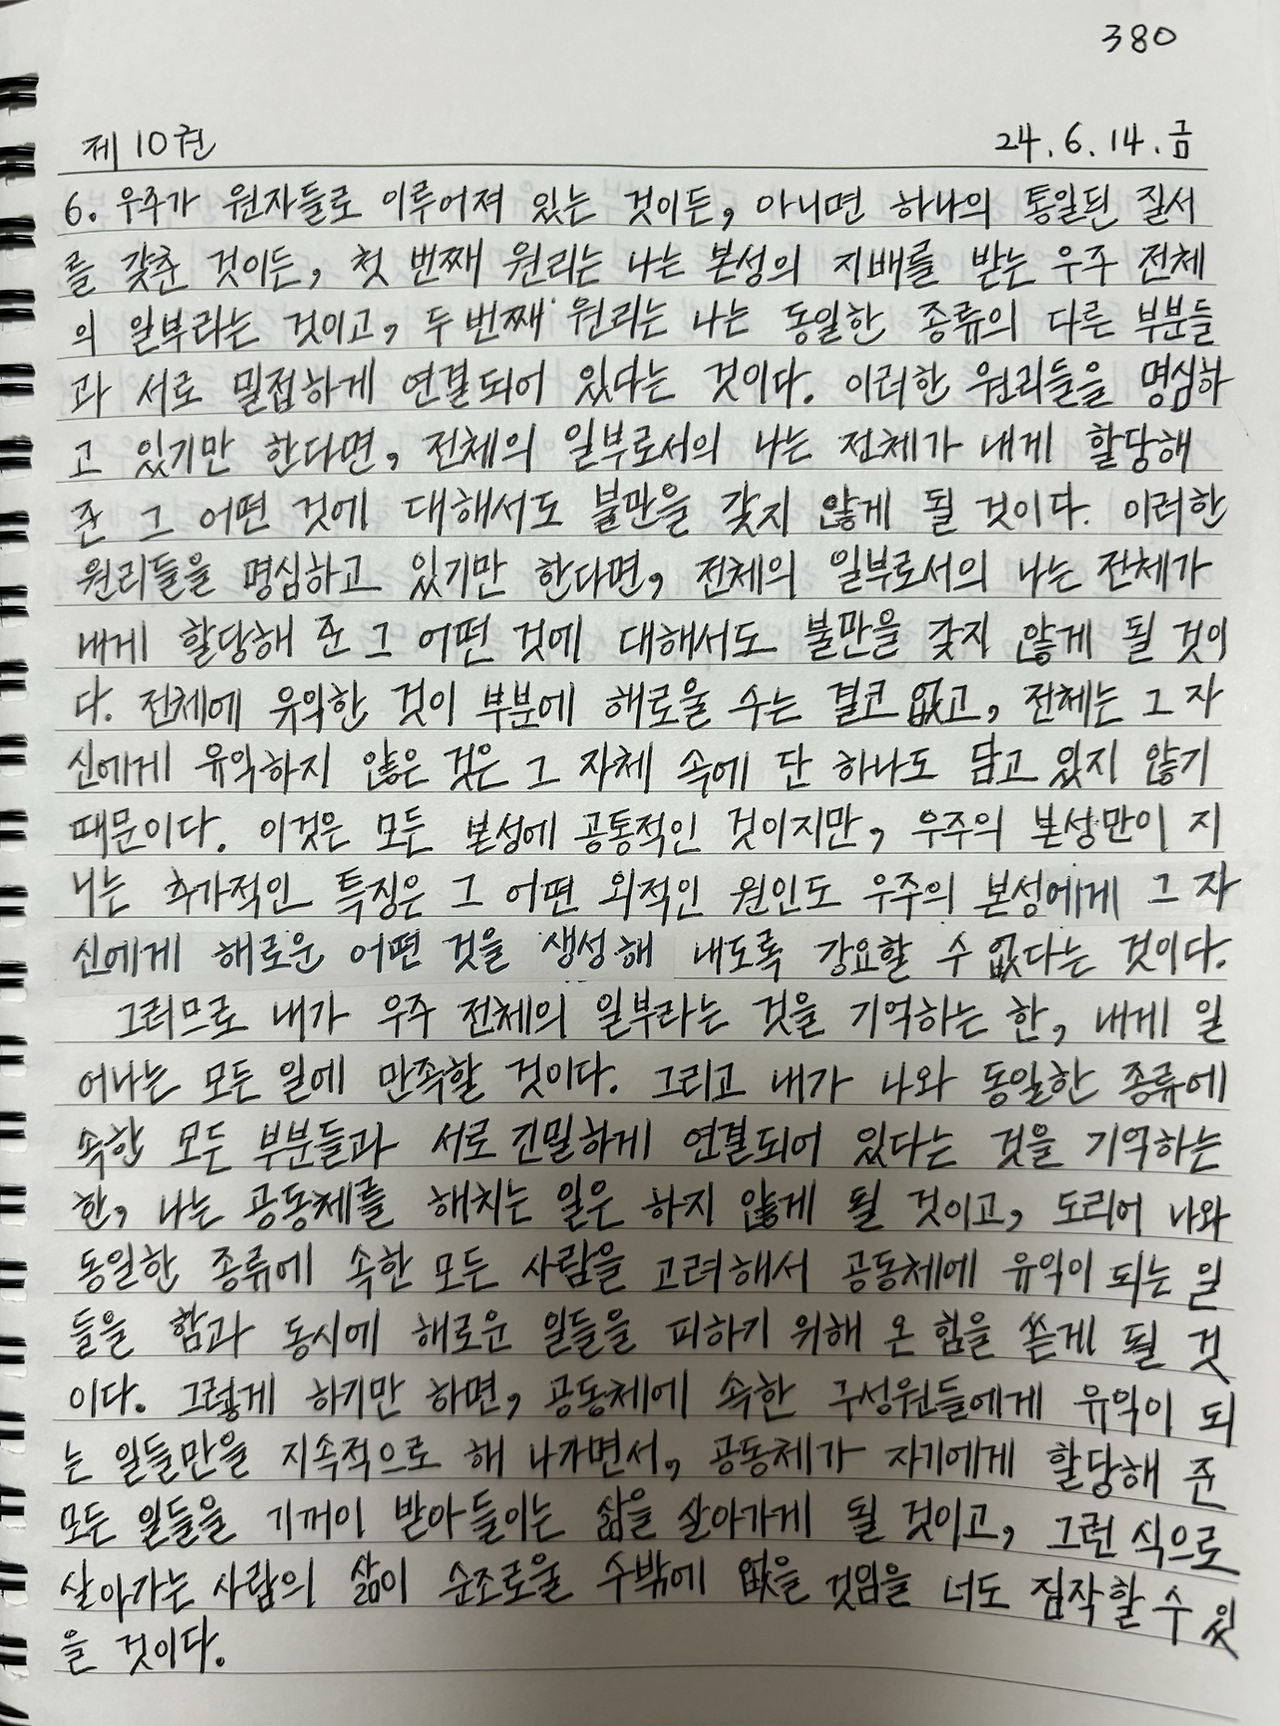 380
제 10권 24.6.14.금
6. 우주가 원자들로 이루어져 있는 것이든, 아니면 하나의 통일된 질서
를 갖춘 것이든, 첫 번째 원리는 나는 본성의 지배를 받는 우주 전체
의 일부라는 것이고, 두 번째 원리는 나는 동일한 종류의 다른 부분들
과 서로 밀접하게 연결되어 있다는 것이다. 이러한 원리들을 명심하
고 있기만 한다면, 전체의 일부로서의 나는 전체가 내게 할당해
준 그 어떤 것에 대해서도 불만을 갖지 않게 될 것이다. 이러한
원리들을 명심하고 있기만 한다면, 전체의 일부로서의 나는 전체가
내게 할당해 준 그 어떤 것에 대해서도 불만을 갖지 않게 될 것이
다. 전체에 유익한 것이 부분에 해로울 수는 결코 없고, 전체는 그 자
신에게 유익하지 않은 것은 그 자체 속에 단 하나도 담고 있지 않기
때문이다. 이것은 모든 본성에 공통적인 것이지만, 우주의 본성만이 지
니는 추가적인 특징은 그 어떤 외적인 원인도 우주의 본성에게 그 자
신에게 해로운 어떤 것을 생성해 내도록 강요할 수 없다는 것이다.
그러므로 내가 우주 전체의 일부라는 것을 기억하는 한, 내게 일
어나는 모든 일에 만족할 것이다. 그리고 내가 나와 동일한 종류에
속한 모든 부분들과 서로 긴밀하게 연결되어 있다는 것을 기억하는
한, 나는 공동체를 해치는 일은 하지 않게 될 것이고, 도리어 나와
동일한 종류에 속한 모든 사람을 고려해서 공동체에 유익이 되는 일
들을 함과 동시에 해로운 일들을 피하기 위해 온 힘을 쏟게 될 것
이다. 그렇게 하기만 하면, 공동체에 속한 구성원들에게 유익이 되
는 일들만을 지속적으로 해 나가면서, 공동체가 자기에게 할당해 준
모든 일들을 기꺼이 받아들이는 삶을 살아가게 될 것이고, 그런 식으로
살아가는 사람의 삶이 순조로울 수밖에 없을 것임을 너도 짐작할 수 있
을 것이다.